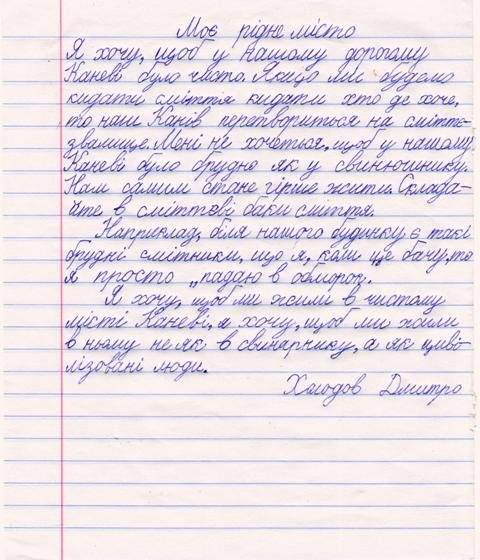 Моє рідне місто
Я хочу, щоб у нашому дорогому
Каневі було чисто. Якщо ми будемо
кидати сміття кидати хто де хоче,
то наш Канів перетвориться на смітте-
звалище. Мені не хочеться, щоб у нашому
Каневі було брудно як у свинючинику.
Нам самим стане гірше жити. Склада-
йте в сміттєві баки сміття.
Наприклад, біля нашого будинку є такі
брудні смітники, що я, коли це бачу, то
я просто „падаю в обморок.
Я хочу, щоб ми жили в чистому
місті Каневі, я хочу, щоб ми жили
в ньому не як в свинарнику, а як циві-
лізовані люди.
Холодов Дмитро